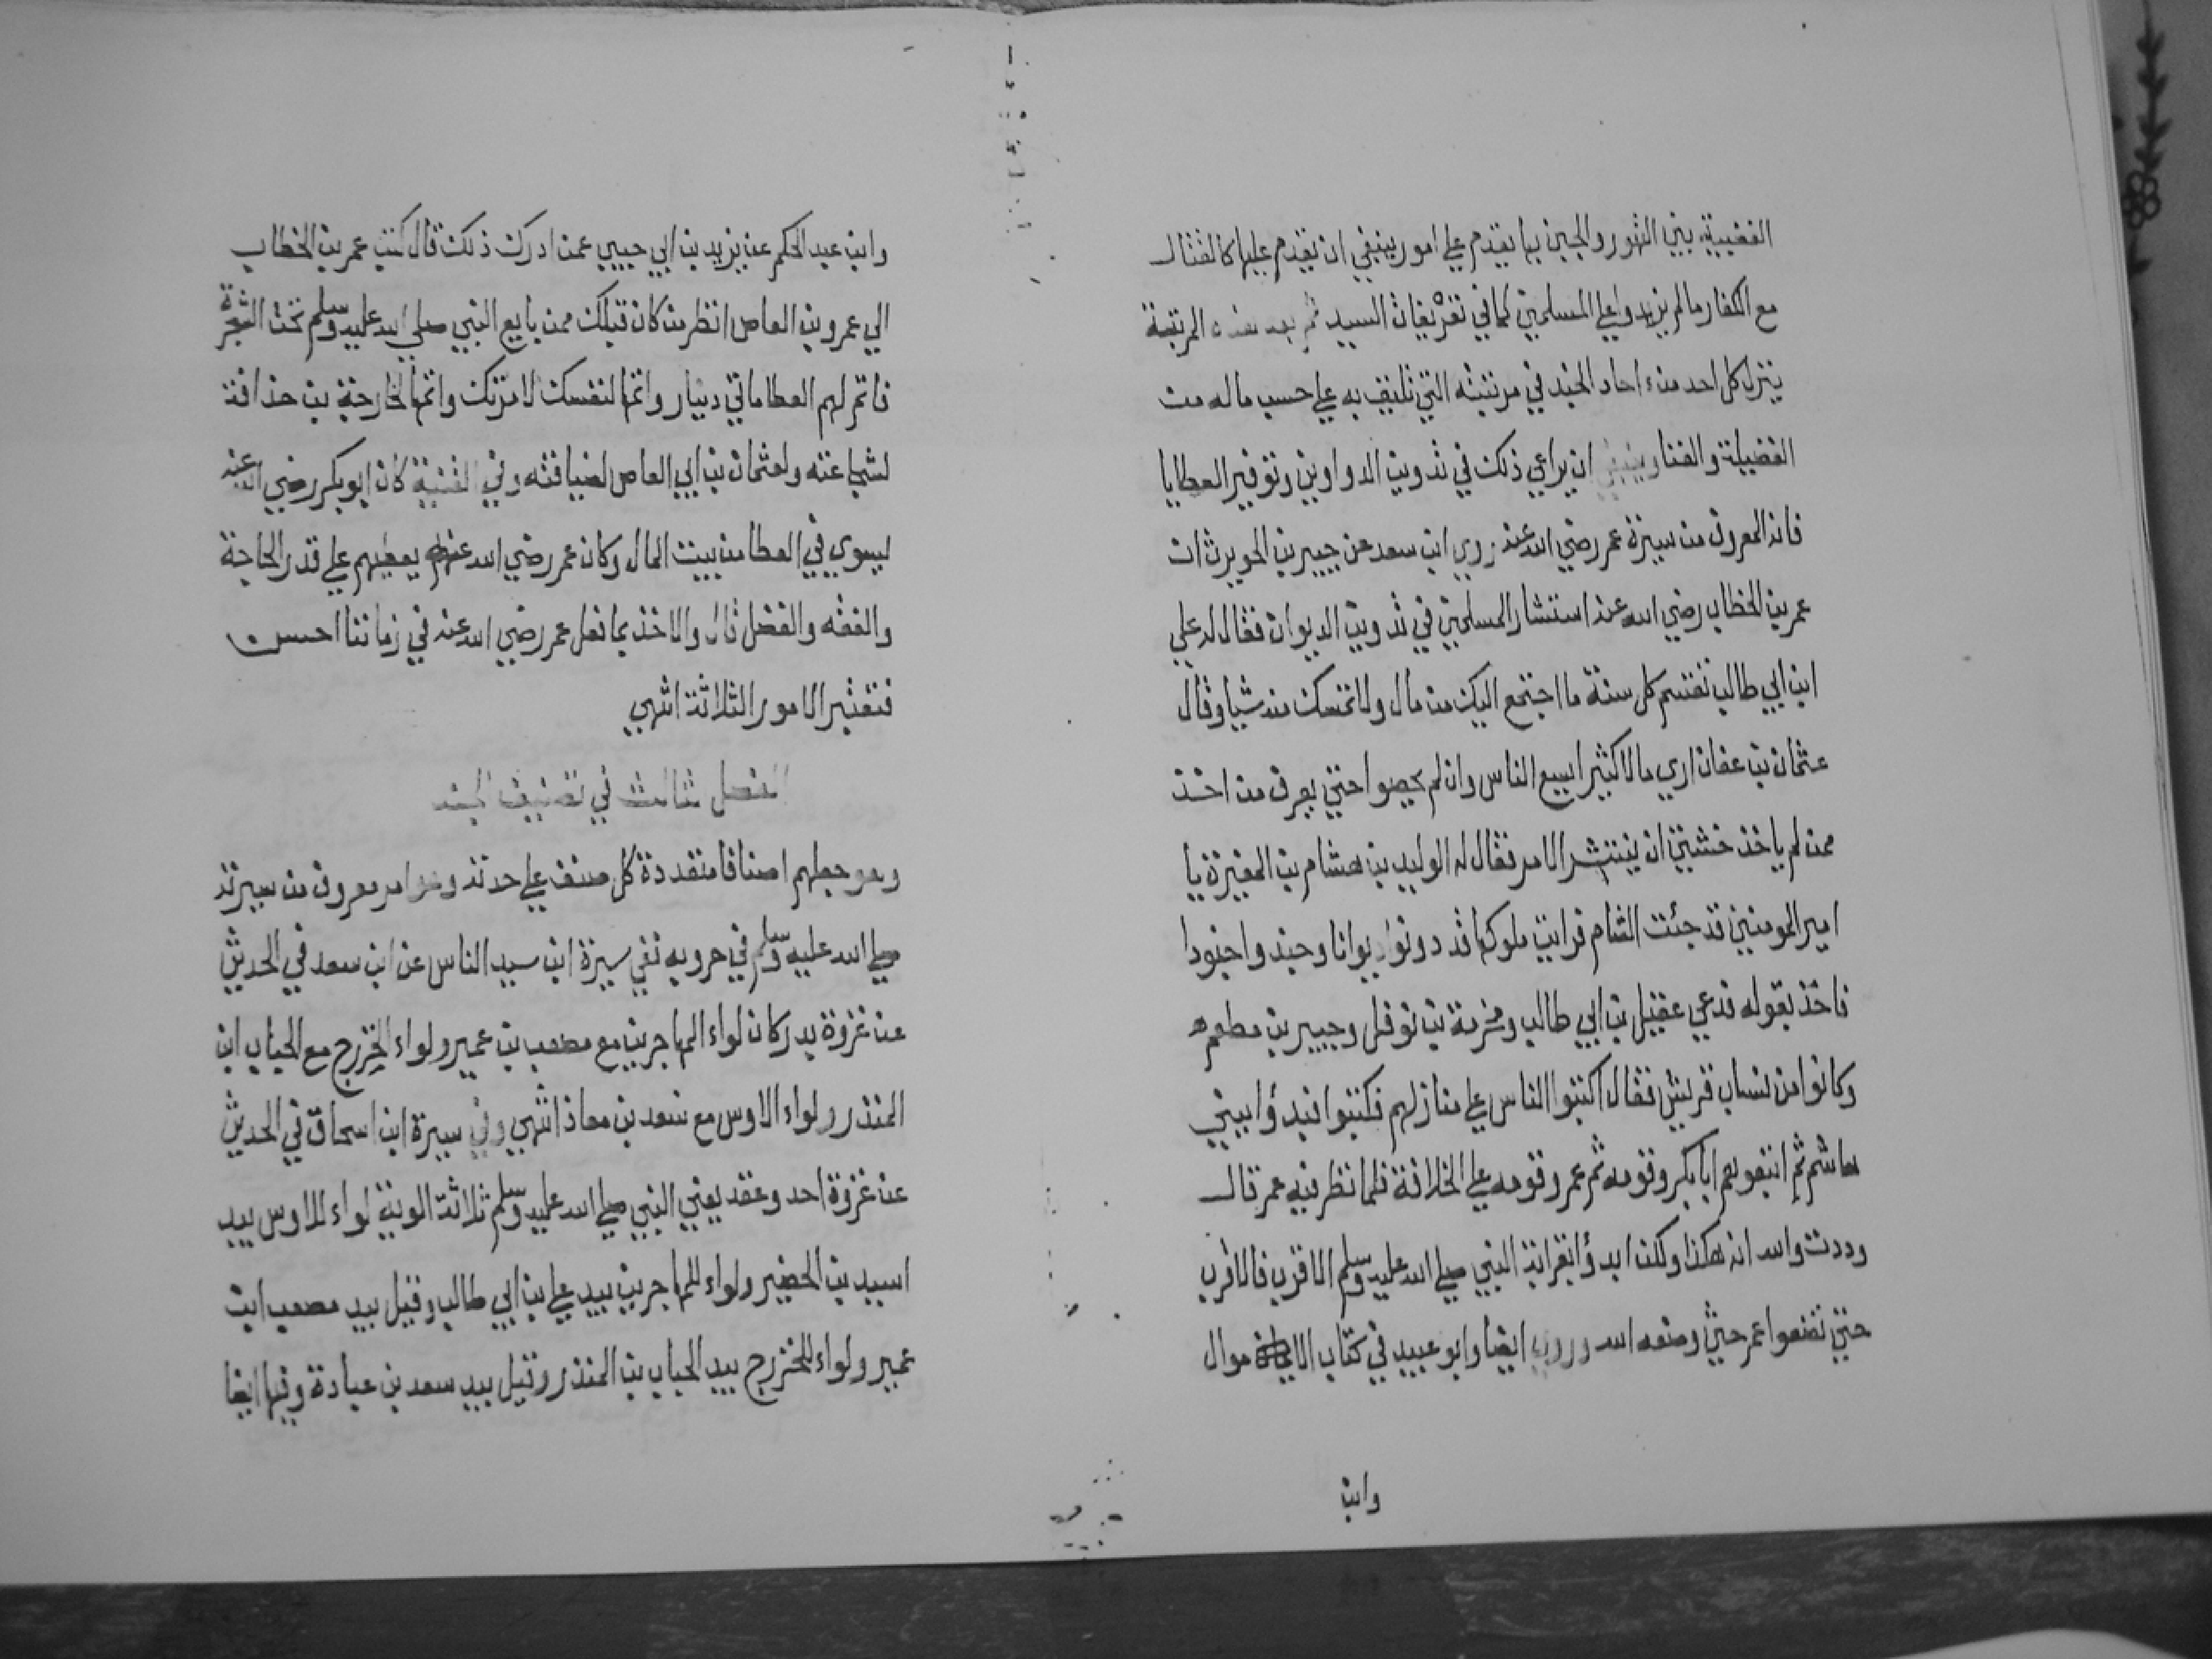 الغضبية بين التهور والجبن بها يقدم على امور ينبغي ان يقدم عليها كالقتال
مع الكفار مالم يزيدوا على المسلمين كما في تعريفات السيد ثم بعد هذه المرتبة
ينزل كل احد منء احاد الجند في مرتبته التي تليق به على حسب ماله من
الفضيلة والغنا وينبغي ان يراعي ذلك في تدوين الدواوين وتوفير العطايا
فانه المعروف من سيرة عمر رضي الله عنه روي ابن سعد عن جبير بن الحويرث ان
عمر بن الخطاب رضي الله عنه استشار المسلمين في تدوين الديوان فقال له علي
ابن ابي طالب تقتسم كل سنة ما اجتمع اليك من مال ولا تمسك منه شيا وقال
عثمان بن عفان اري مالا كثيرا يسع الناس وان لم يحصوا حتى يعرف من اخذ
ممن لم ياخذ خشيت ان ينتشر الامر فقال له الوليد بن هشام بن المغيرة يا
امير المومنين قد جئت الشام فرايت ملوكها قد دونوا ديوانا وجندوا جنودا
فاخذ بقوله فدعي عقيل بن ابي طالب ومخرمة بن نوفل وجبير بن مطعم
وكانوا من نساب قريش فقال اكتبوا الناس على منازلهم فكتبوا فبدؤا ببني
هاشم ثم اتبعوهم ابا بكر وقومه ثم عمر وقومه على الخلافة فلما نظر فيه عمر قال
وددت والله انه هكذا ولكن ابدؤا بقرابة النبي صلى الله عليه وسلم الاقرب فالاقرب
حتى تضعوا عمر حيث وضعه الله وروي ايضا وابو عبيد في كتاب الاموال
وابن
وابن عبد الحكم عن يزيد بن ابي حبيب عمن ادرك ذلك قال كتب عمر بن الخطاب
الي عمرو بن العاص انظر من كان قبلك ممن بايع النبي صلى الله عليه وسلم تحت الشجرة
فاتم لهم العطا ماتي دينار واتمها لنفسك لامرتك واتمها لخارجة بن حذافة
لشجاعته ولعثمان بن ابي العاص لضيافته وفي القنية كان ابو بكر رضي الله عنه
يسوي في العطا من بيت المال وكان عمر رضي الله عنه يعطيهم على قدر الحاجة
والفقه والفضل قال والاخذ بما فعل عمر رضي الله عنه في زماننا احسن
فتعتبر الامور الثلاثة انتهي
الفصل الثالث في تصنيف الجند
وهو جعلهم اصنافا متعددة كل صنف على حدته وهو امر معروف من سيرته
صلى الله عليه وسلم في حروبه ففي سيرة ابن سيد الناس عن ابن سعد في الحديث
عن غزوة بدر كان لواء المهاجرين مع مصعب بن عمير ولواء الخزرج مع الحباب ابن
المنذر ولواء الاوس مع سعد بن معاذ انتهي وفي سيرة ابن اسحاق في الحديث
عن غزوة احد وعقد يعني النبي صلى الله عليه وسلم ثلاثة الوية لواء للاوس بيد
اسيد بن الحضير ولواء للمهاجرين بيد علي بن ابي طالب وقيل بيد مصعب ابن
عمير ولواء للخزرج بيد الحباب بن المنذر وقيل بيد سعد بن عبادة وفيها ايضا